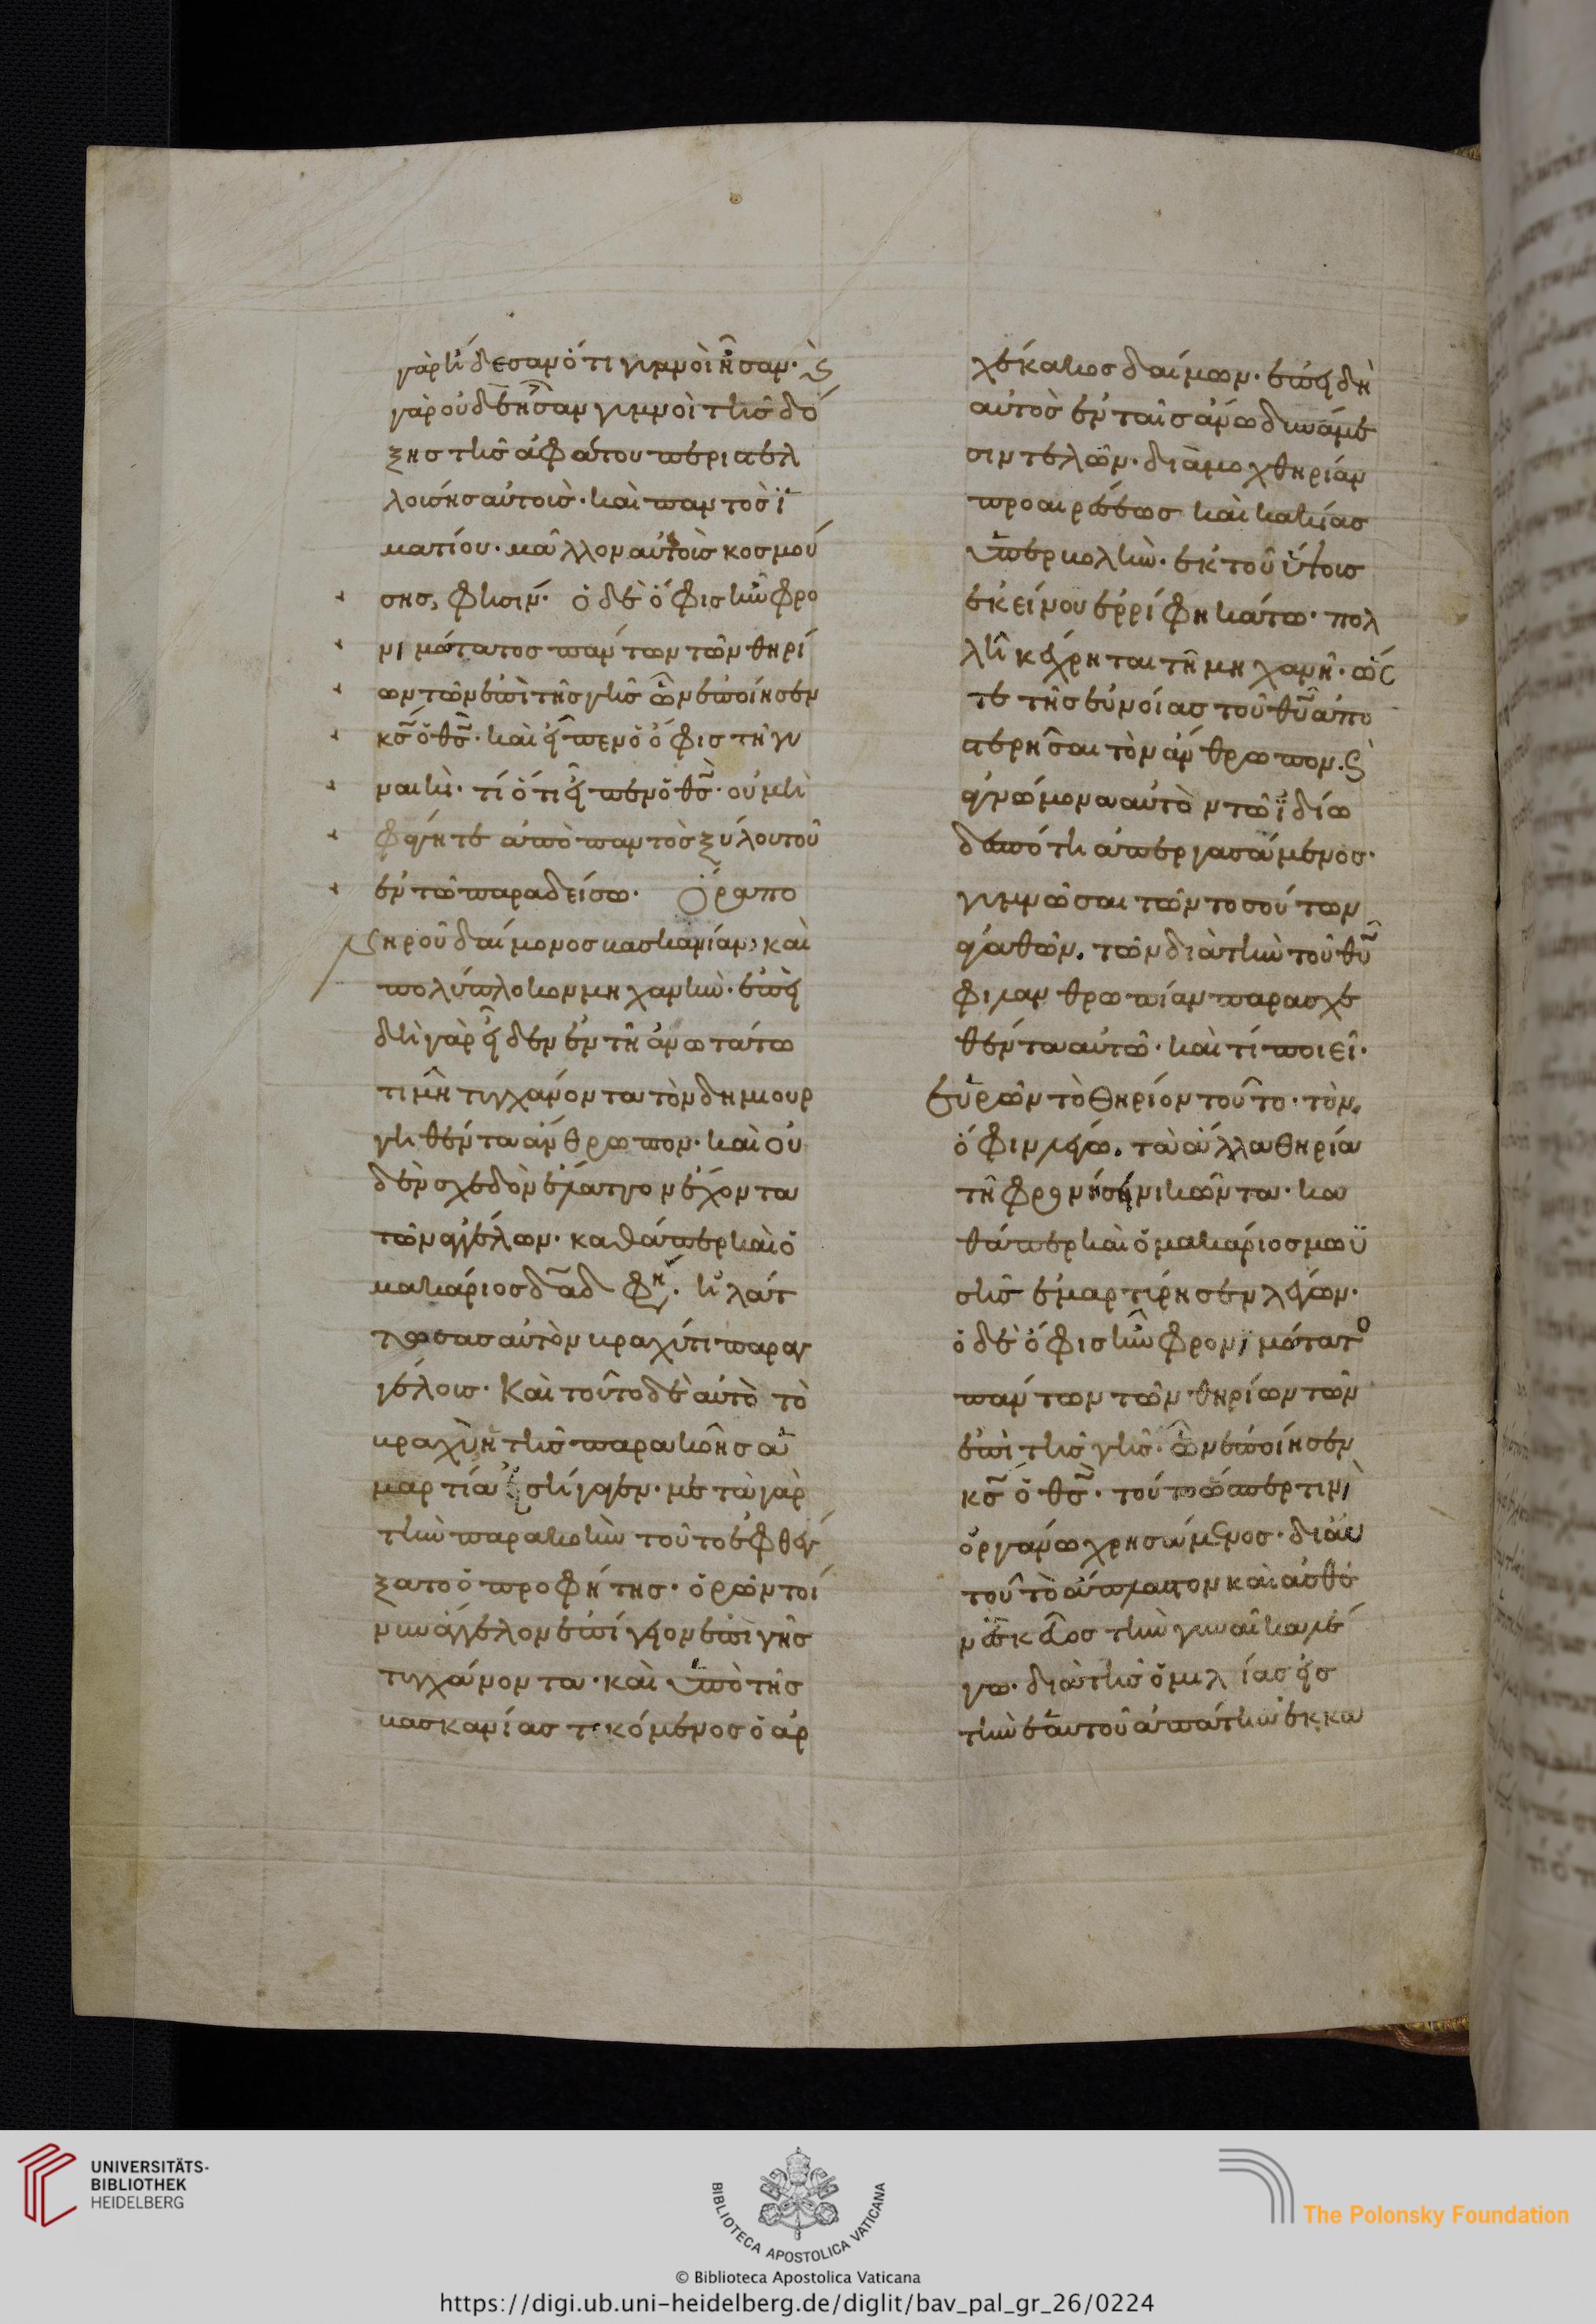 γὰρ ἤδεσαν ὅτι γυμνοὶ ἦσαν· ϛ̀
γὰρ οὐδὲ ἦσαν γυμνοὶ τῆς δό
ξης τῆς ἀφάτου περιστελ
λούσης αὐτοὺς· καὶ παντὸς ἱ
ματίου· μᾶλλον αὐτοὺς κοσμού
σης, φησίν· ὁ δὲ ὄφις ἦν φρο
νιμώτατος πάντων τῶν θηρί
ων τῶν ἐπὶ τῆς γῆς ὧν ἐποίησεν
κς̅ ὁ θς̅· καὶ εἶπεν ὁ ὄφις τῇ γυ
ναικὶ· τί ὅτι εἶπεν ὁ θς̅· οὐ μὴ
φάγητε ἀπὸ παντὸς ξύλου τοῦ
ἐν τῷ παραδείσω· Ὅρα πο
νηροῦ δαίμονος βασκανίαν, καὶ
πολύπλοκον μηχανὴν· ἐπει
δὴ γὰρ εἶδεν ἐν τῇ ἀνωτάτω
τιμῇ τυγχάνοντα τὸν δημιουρ
γηθέντα ἄνθρωπον· καὶ οὐ
δὲν σχεδὸν ἔλαττον ἔχοντα
τῶν ἀγγέλων· καθάπερ καὶ ὁ
μακάριος δα̅δ φη· ἠλάτ
τωσας αὐτὸν βραχύτι παρ' ἀγ
γέλοις· Καὶ τοῦτο δὲ αὐτὸ τὸ
βραχὺ ἡ τῆς παρακοῆς ἁ
μαρτία εἰσήγαγεν· μετὰ γὰρ
τὴν παρακοὴν τοῦτο ἐφθέγ
ξατο ὁ προφήτης· ὁρῶν τοί
νυν ἄγγελον ἐπίγειον ἐπὶ γῆς
τυγχάνοντα· καὶ ὑπὸ τῆς
βασκανίας τηκόμενος ὁ ἀρ
χέκακος δαίμων· ἐπειδὴ
αὐτὸς ἐν ταῖς ἄνω δυνάμε
σιν τελῶν· διὰ μοχθηρίαν
προαιρέσεως καὶ κακίας
ὑπερβολὴν· ἐκ τοῦ ὕψους
ἐκείνου ἐρρίφη κάτω· πολ
λῇ κέχρηται τῇ μηχανῇ· ὥς
τε τῆς εὐνοίας τοῦ θυ̅ ἀπο
στερῆσαι τὸν ἄνθρωπον· ϛ̀
ἀγνώμονα αὐτὸν τῷ ἰδίω
δεσπότη ἀπεργασάμενος·
γυμνῶσαι τῶν τοσούτων
ἀγαθῶν· τῶν διὰ τὴν τοῦ θυ̅
φιλανθρωπίαν παρασχε
θέντα αὐτῷ· καὶ τί ποιεῖ·
Εὑρὼν τὸ θηρίον τοῦτο· τὸν
ὄφιν λέγω· τὰ ἄλλα θηρία
τῇ φρονήσει νικῶντα· κα
θάπερ καὶ ὁ μακάριος μωϋ
σῆς ἐμαρτύρησεν λέγων·
ὁ δὲ ὄφις ἦν φρονιμώτατο
πάντων τῶν θηρίων τῶν
ἐπὶ τῆς γῆς· ὧν ἐποίησεν
κς̅ ὁ θς̅· τούτω ὥσπερ τινὶ
ὀργάνω χρησάμενος· διὰ
τοῦτο ἄπλαστον καὶ ἀσθε
νὲς σκεῦος τὴν γυναῖκα λέ
γω· διὰ τῆς ὁμιλίας εἰς
τὴν ἑαυτοῦ ἀπάτην ἐκκα